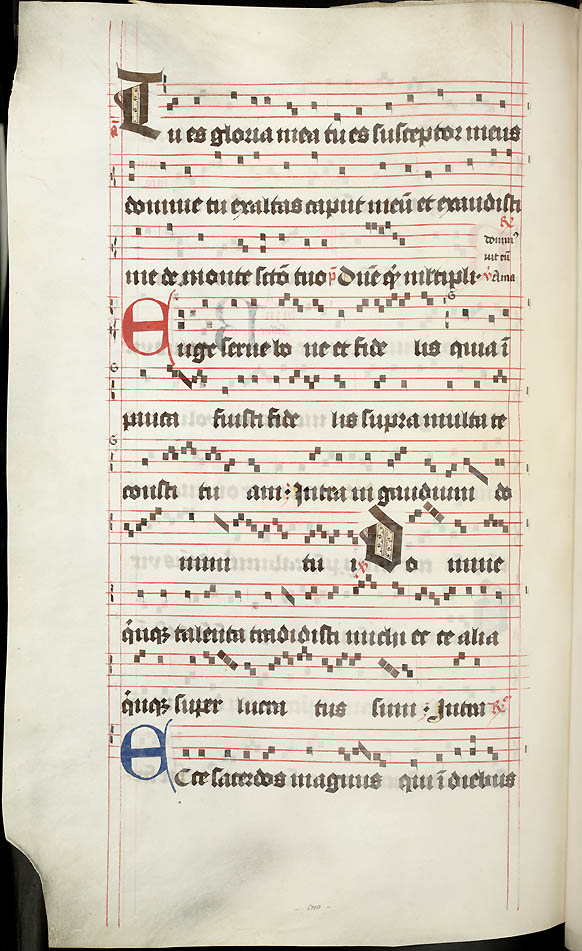 Tu es gloria mea tu es susceptor meus
domine tu exaltas caput meū et exaudisti
me de monte scō tuo p̄ Dn̄e qͥ mltipli·
domin⁹
uit eū
v̄ Ama
Euge serue bo ne et fide lis quia ī
pauca fuisti fide lis supra multa te
consti tu am· Intra in gaudium do
mini tu i Do mine
qͥnqꝫ talenta tradidisti michi et ce alia
qͥnqꝫ super lucra tus sum· Intra
Ecce sacerdos magnus qui ī diebus